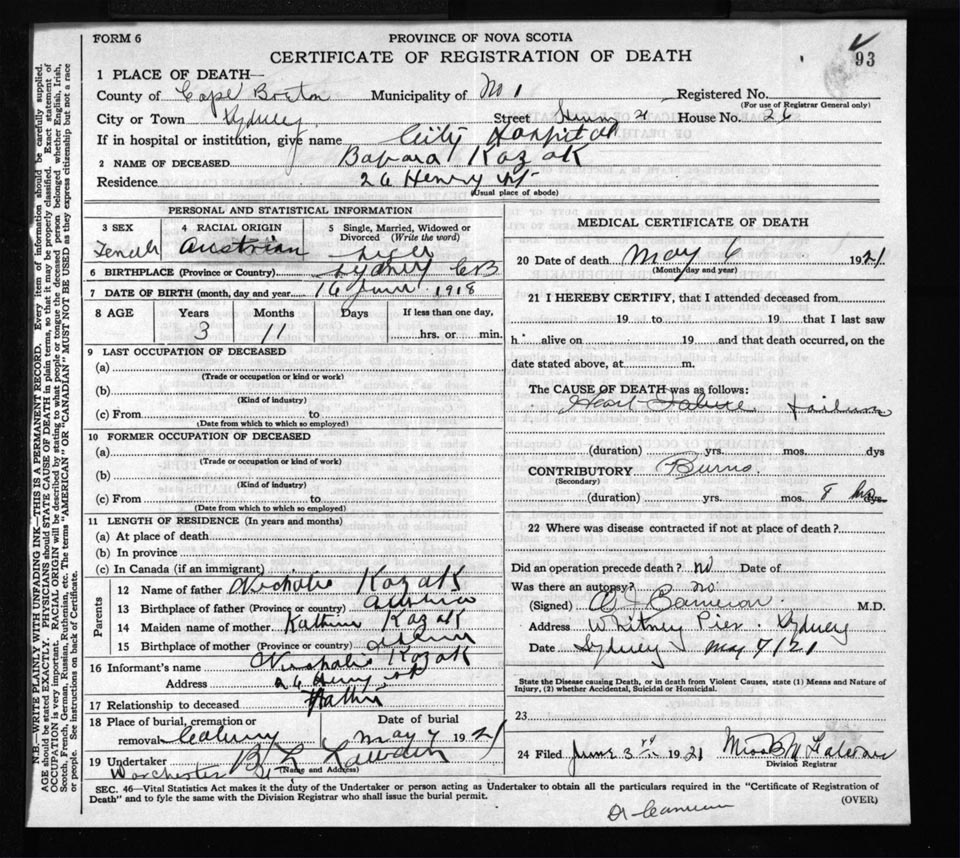 FORM 6
PROVINCE OF NOVA SCOTIA
CERTIFICATE OF REGISTRATION OF DEATH
93
1 PLACE OF DEATH—
County of Cape Breton Municipality of No 1 Registered No.
(For use of Registrar General only)
City or Town Sydney Street Henry St House No. 26
If in hospital or institution, give name City Hospital
2 NAME OF DECEASED Kazak
Residence 26 Henry St
(Usual place of abode)
PERSONAL AND STATISTICAL INFORMATION
3 SEX
Female
4 RACIAL ORIGIN
Austrian
5 Single, Married, Widowed or Divorced (Write the word)
6 BIRTHPLACE (Province or Country) Sydney CB
7 DATE OF BIRTH (month, day and year) 16 June 1918
8 AGE Years Months Days If less than one day,
3 11 hrs. or min.
9 LAST OCCUPATION OF DECEASED
(a)
(Trade or occupation or kind or work)
(b)
(Kind of industry)
(c) From to
(Date from which to which so employed)
10 FORMER OCCUPATION OF DECEASED
(a)
(Trade or occupation or kind of work)
(b)
(Kind of industry)
(c) From to
(Date from which to which so employed)
11 LENGTH OF RESIDENCE (In years and months)
(a) At place of death
(b) In province
(c) In Canada (if an immigrant)
Parents
12 Name of father Kazak
13 Birthplace of father (Province or country) Austria
14 Maiden name of mother Kazak
15 Birthplace of mother (Province or country)
16 Informant's name Kazak
Address 26 Henry St
17 Relationship to deceased Father
18 Place of burial, cremation or removal Calvary
Date of burial May 7 1921
19 Undertaker
(Name and Address)
Dorchester St
MEDICAL CERTIFICATE OF DEATH
20 Date of death May 6 1921
(Month, day and year)
21 I HEREBY CERTIFY, that I attended deceased from
19 to 19 that I last saw
h alive on 19 and that death occurred, on the
date stated above, at m.
The CAUSE OF DEATH was as follows:
Heart Failure
(duration) yrs. mos. dys
CONTRIBUTORY Burns.
(Secondary)
(duration) yrs. mos. 8 hrs
22 Where was disease contracted if not at place of death?
Did an operation precede death? no Date of
Was there an autopsy? no
(Signed) Cameron M.D.
Address Whitney Pier. Sydney
Date Sydney May 7/21
State the Disease causing Death, or in death from Violent Causes, state (1) Means and Nature of
Injury, (2) whether Accidental, Suicidal or Homicidal.
23
24 Filed June 3rd 1921
Division Registrar
SEC. 46—Vital Statistics Act makes it the duty of the Undertaker or person acting as Undertaker to obtain all the particulars required in the "Certificate of Registration of
Death" and to fyle the same with the Division Registrar who shall issue the burial permit.
(OVER)
Dr Cameron
N.B.—WRITE PLAINLY WITH UNFADING INK—THIS IS A PERMANENT RECORD. Every item of information should be carefully supplied.
AGE should be stated EXACTLY. PHYSICIANS should STATE CAUSE OF DEATH in plain terms, so that it may be properly classified. Exact statement of
OCCUPATION is very important. RACIAL ORIGIN will be described by stating to what people or tongue the deceased person belonged whether English, Irish,
Scotch, French, German, Russian, Ruthenian, etc. The terms "AMERICAN" OR "CANADIAN" MUST NOT BE USED as they express citizenship but not a race
or people. See instructions on back of Certificate.